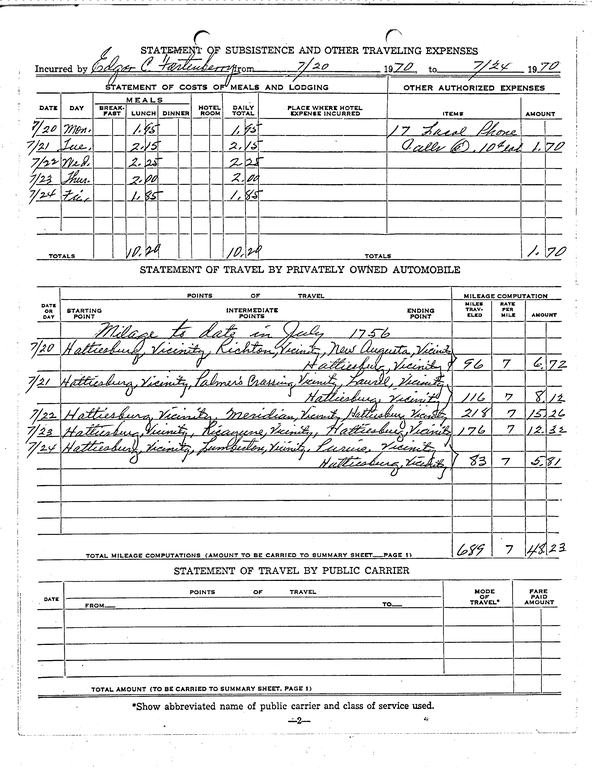 STATEMENT OF SUBSISTENCE AND OTHER TRAVELING EXPENSES
Incurred by Edgar C. Fortenberry from 7/20 1970 to 7/24 1970
STATEMENT OF COSTS OF MEALS AND LODGING OTHER AUTHORIZED EXPENSES
DATE DAY MEALS BREAK-FAST LUNCH DINNER HOTEL ROOM DAILY TOTAL PLACE WHERE HOTEL EXPENSE INCURRED ITEMS AMOUNT
7/20 Mon. 1.95 1.95 17 Local Phone
7/21 Tue. 2.15 2.15 Calls @ .10¢ 1.70
7/22 Wed. 2.25 2.25
7/23 Thur. 2.00 2.00
7/24 Fri. 1.85 1.85
TOTALS 10.20 10.20 TOTALS 1.70
STATEMENT OF TRAVEL BY PRIVATELY OWNED AUTOMOBILE
DATE OR DAY POINTS OF TRAVEL MILEAGE COMPUTATION
STARTING POINT INTERMEDIATE POINTS ENDING POINT MILES TRAV-ELED RATE PER MILE AMOUNT
Milage to date in July 1756
7/20 Hattiesburg, Vicinity, Richton, Vicinity, New Augusta, Vicinity
Hattiesburg, Vicinity 96 7 6.72
7/21 Hattiesburg, Vicinity, Palmer's Crossing, Vicinity, Laurel, Vicinity
Hattiesburg Vicinity 116 7 8.12
7/22 Hattiesburg, Vicinity, Meridian, Vicinity, Hattiesburg Vicinity 218 7 15.26
7/23 Hattiesburg, Vicinity, Picayune, Vicinity, Hattiesburg, Vicinity 176 7 12.32
7/24 Hattiesburg, Vicinity, Lumberton, Vicinity, Purvis, Vicinity
Hattiesburg, Vicinity 83 7 5.81
TOTAL MILEAGE COMPUTATIONS (AMOUNT TO BE CARRIED TO SUMMARY SHEET—PAGE 1) 689 7 48.23
STATEMENT OF TRAVEL BY PUBLIC CARRIER
DATE POINTS OF TRAVEL MODE OF TRAVEL* FARE PAID AMOUNT
FROM— TO—
TOTAL AMOUNT (TO BE CARRIED TO SUMMARY SHEET, PAGE 1)
*Show abbreviated name of public carrier and class of service used.
—2—